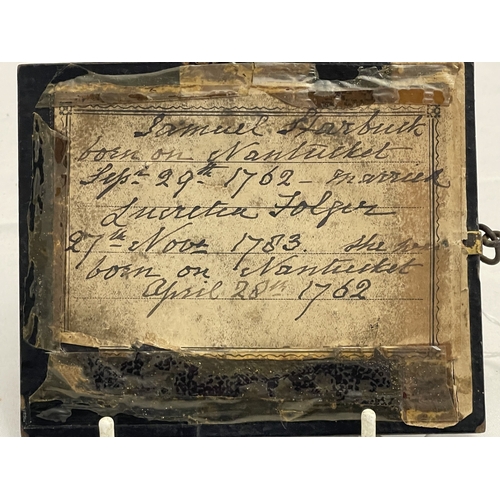 Samuel Starbuck
born on Nantucket
Sept 29th 1762 - married
Lucretia Folger
27th Nov. 1783. She was
born on Nantucket
April 28th 1762